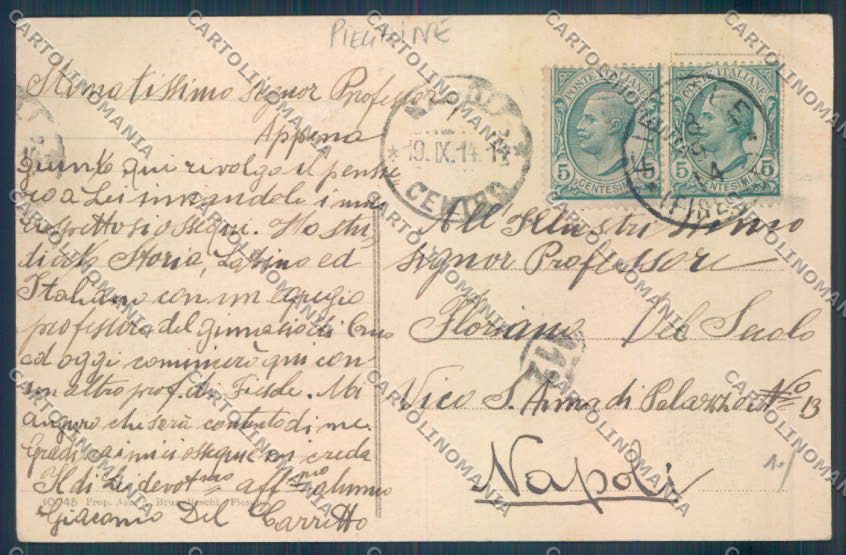 PIEGHINE
Stimatissimo signor Professore
Appena
giunto qui rivolgo il pensie
ro a Lei inviandole i miei
rispettosi ossequi. Ho stu
diato Storia, Latino ed
Italiano con un egregio
professore del ginnasio di
ed oggi comincerò qui con
un altro prof. di Fiesole. Mi
auguro che sarà contento di me.
Gradisca i miei ossequi e mi creda
Il di Lei devotmo aff.mo alunno
Giacomo Del Carretto
10945 Prop. Art. Brunelleschi, Fiesole
19.IX.14
CENTRO
POSTE ITALIANE
5 CENTESIMI 5
POSTE ITALIANE
5 CENTESIMI 5
(FIRENZE)
All'Illustrissimo
Signor Professore
Floriano Del Secolo
112
Vico S. Anna di Palazzo No 13
Napoli
CARTOLINOMANIA